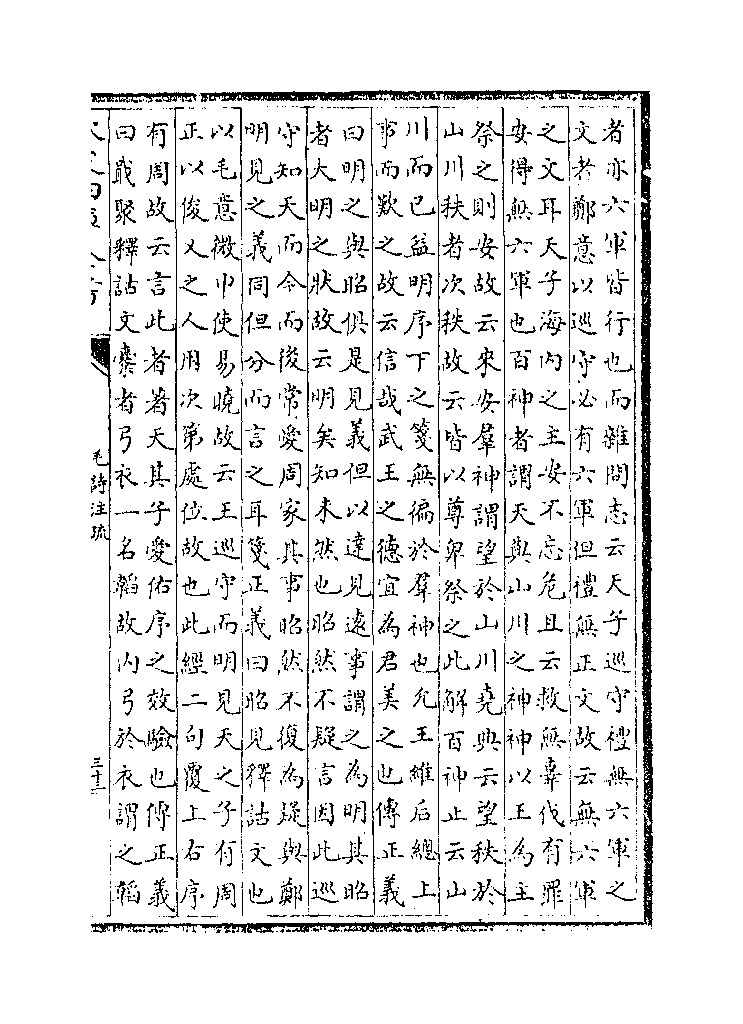 者亦六軍皆行也而雜問志云天子巡守禮無六軍之
文者鄭意以巡守必有六軍但禮無正文故云無六軍
之文耳天子海内之主安不忘危且云救無辜伐有罪
安得無六軍也百神者謂天與山川之神神以王為主
祭之則安故云來安羣神謂望於山川堯典云望秩於
山川秩者次秩故云皆以尊卑祭之此解百神止云山
川而已益明序下之箋無徧於羣神也允王維后總上
事而歎之故云信哉武王之德宜為君美之也傳正義
曰明之與昭俱是見義但以達見逺事謂之為明其昭
者大明之狀故云明矣知未然也昭然不疑言因此巡
守知天而今而後常愛周家其事昭然不復為疑與鄭
明見之義同但分而言之耳箋正義曰昭見釋詁文也
以毛意微巾使易曉故云王巡守而明見天之子有周
正以俊乂之人用次第處位故也此經二句覆上右序
有周故云言此者著天其子愛佑序之效驗也傳正義
曰戢聚釋詁文櫜者弓衣一名韜故内弓於衣謂之韜
毛詩注疏
三十三